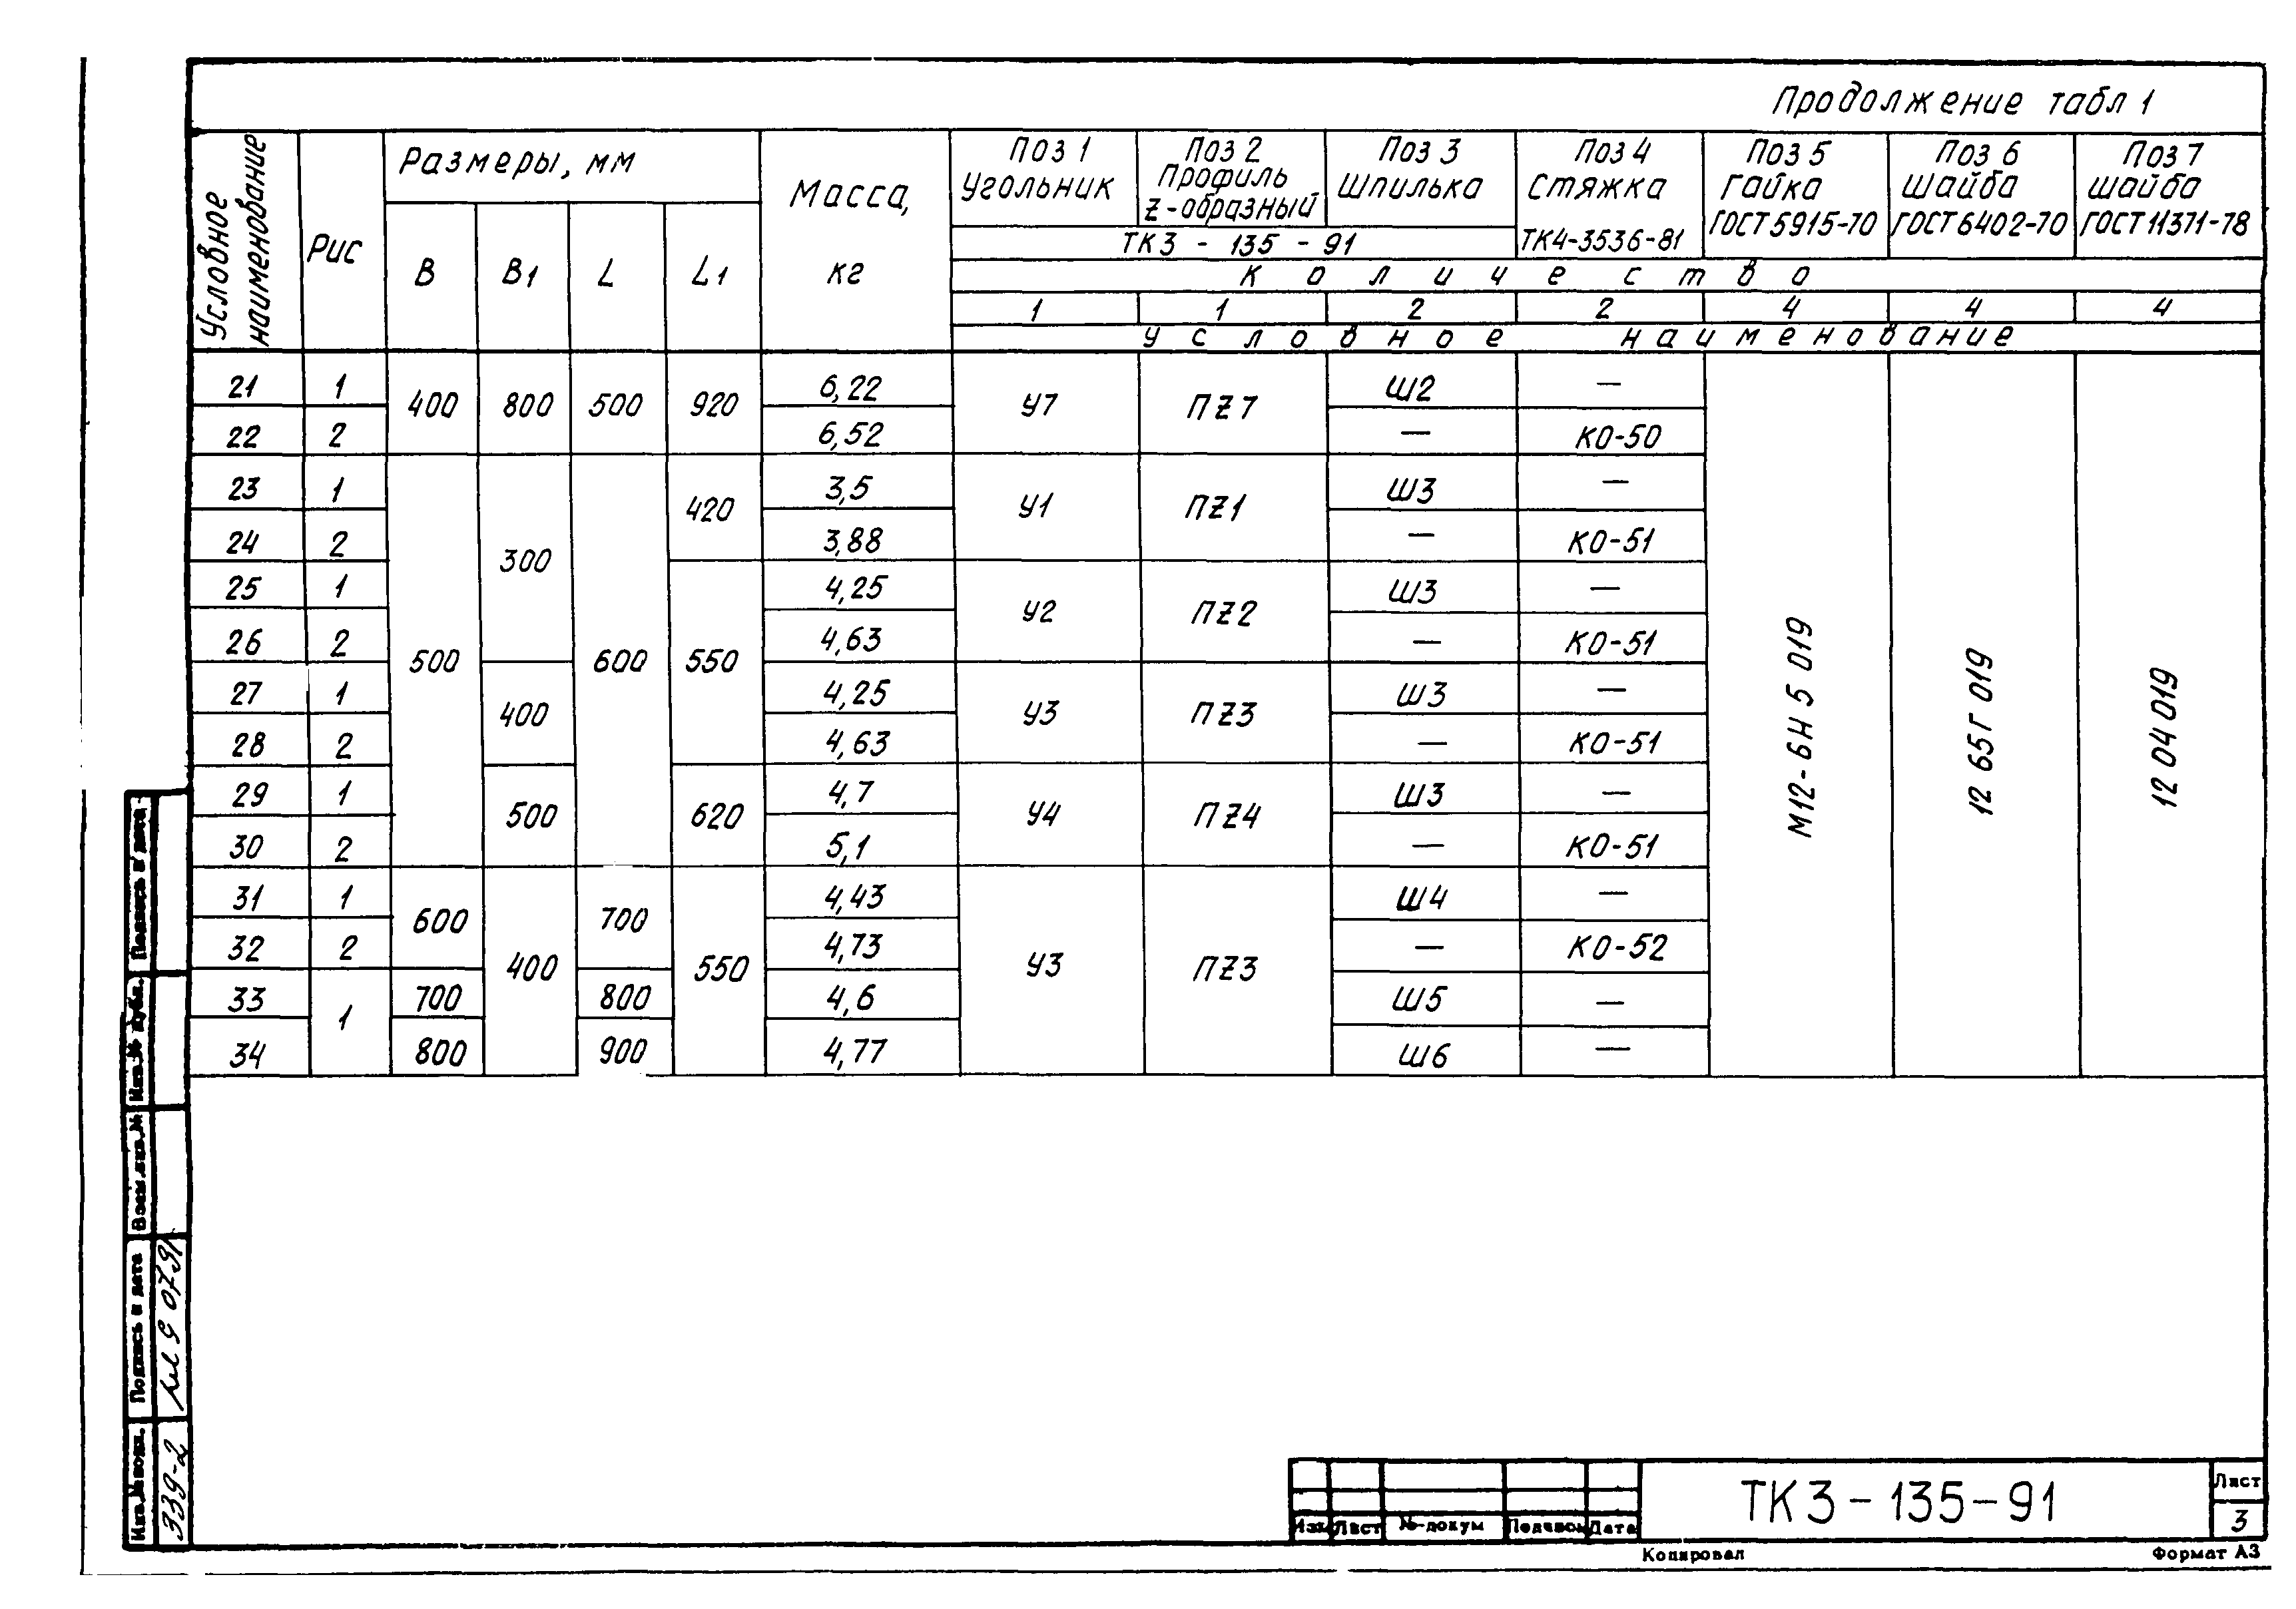 Продолжение табл 1
Условное наименование
Рис
Размеры, мм
B
B1
L
L1
Масса, кг
Поз 1 Угольник
Поз 2 Профиль Z-образный
Поз 3 Шпилька
Поз 4 Стяжка
Поз 5 Гайка ГОСТ 5915-70
Поз 6 Шайба ГОСТ 6402-70
Поз 7 Шайба ГОСТ 11371-78
ТК3 - 135 - 91
ТК4-3536-81
Количество
1 1 2 2 4 4 4
Условное наименование
21 1 400 800 500 920 6,22 У7 ПZ7 Ш2 —
22 2 6,52 — КО-50
23 1 500 300 600 420 3,5 У1 ПZ1 Ш3 —
24 2 3,88 — КО-51
25 1 550 4,25 У2 ПZ2 Ш3 —
26 2 4,63 — КО-51
27 1 400 4,25 У3 ПZ3 Ш3 —
28 2 4,63 — КО-51
29 1 500 620 4,7 У4 ПZ4 Ш3 —
30 2 5,1 — КО-51
31 1 600 400 700 550 4,43 У3 ПZ3 Ш4 —
32 2 4,73 — КО-52
33 1 700 800 4,6 Ш5 —
34 800 900 4,77 Ш6 —
М12-6Н 5 019
12 65Г 019
12 04 019
Подпись и дата
Инв.№ дубл.
Взам.инв.№
Подпись и дата
Инв.№ подл.
339-2
Изм Лист № докум Подпись Дата
ТК3-135-91
Лист
3
Копировал
Формат А3